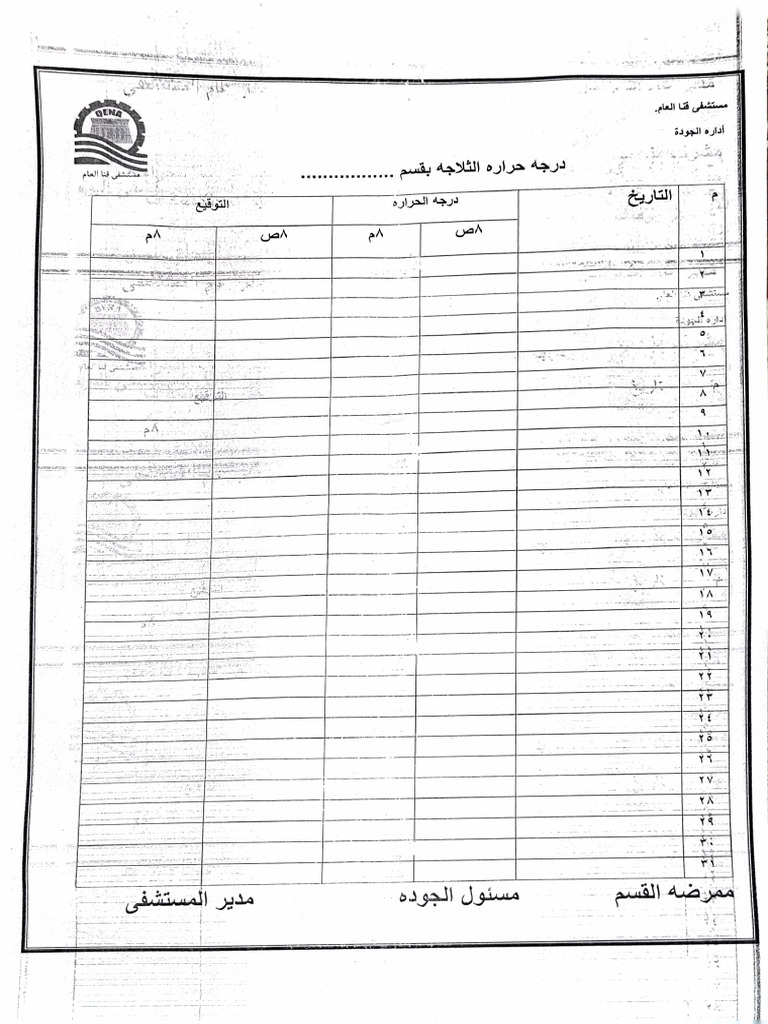 مستشفى قنا العام.
أداره الجودة
QENA
مستشفى قنا العام
درجه حراره الثلاجه بقسم .................
م التاريخ درجه الحراره التوقيع
٨ص ٨م ٨ص ٨م
١
٢
٣
٤
٥
٦
٧
٨
٩
١٠
١١
١٢
١٣
١٤
١٥
١٦
١٧
١٨
١٩
٢٠
٢١
٢٢
٢٣
٢٤
٢٥
٢٦
٢٧
٢٨
٢٩
٣٠
٣١
ممرضه القسم مسئول الجوده مدير المستشفى